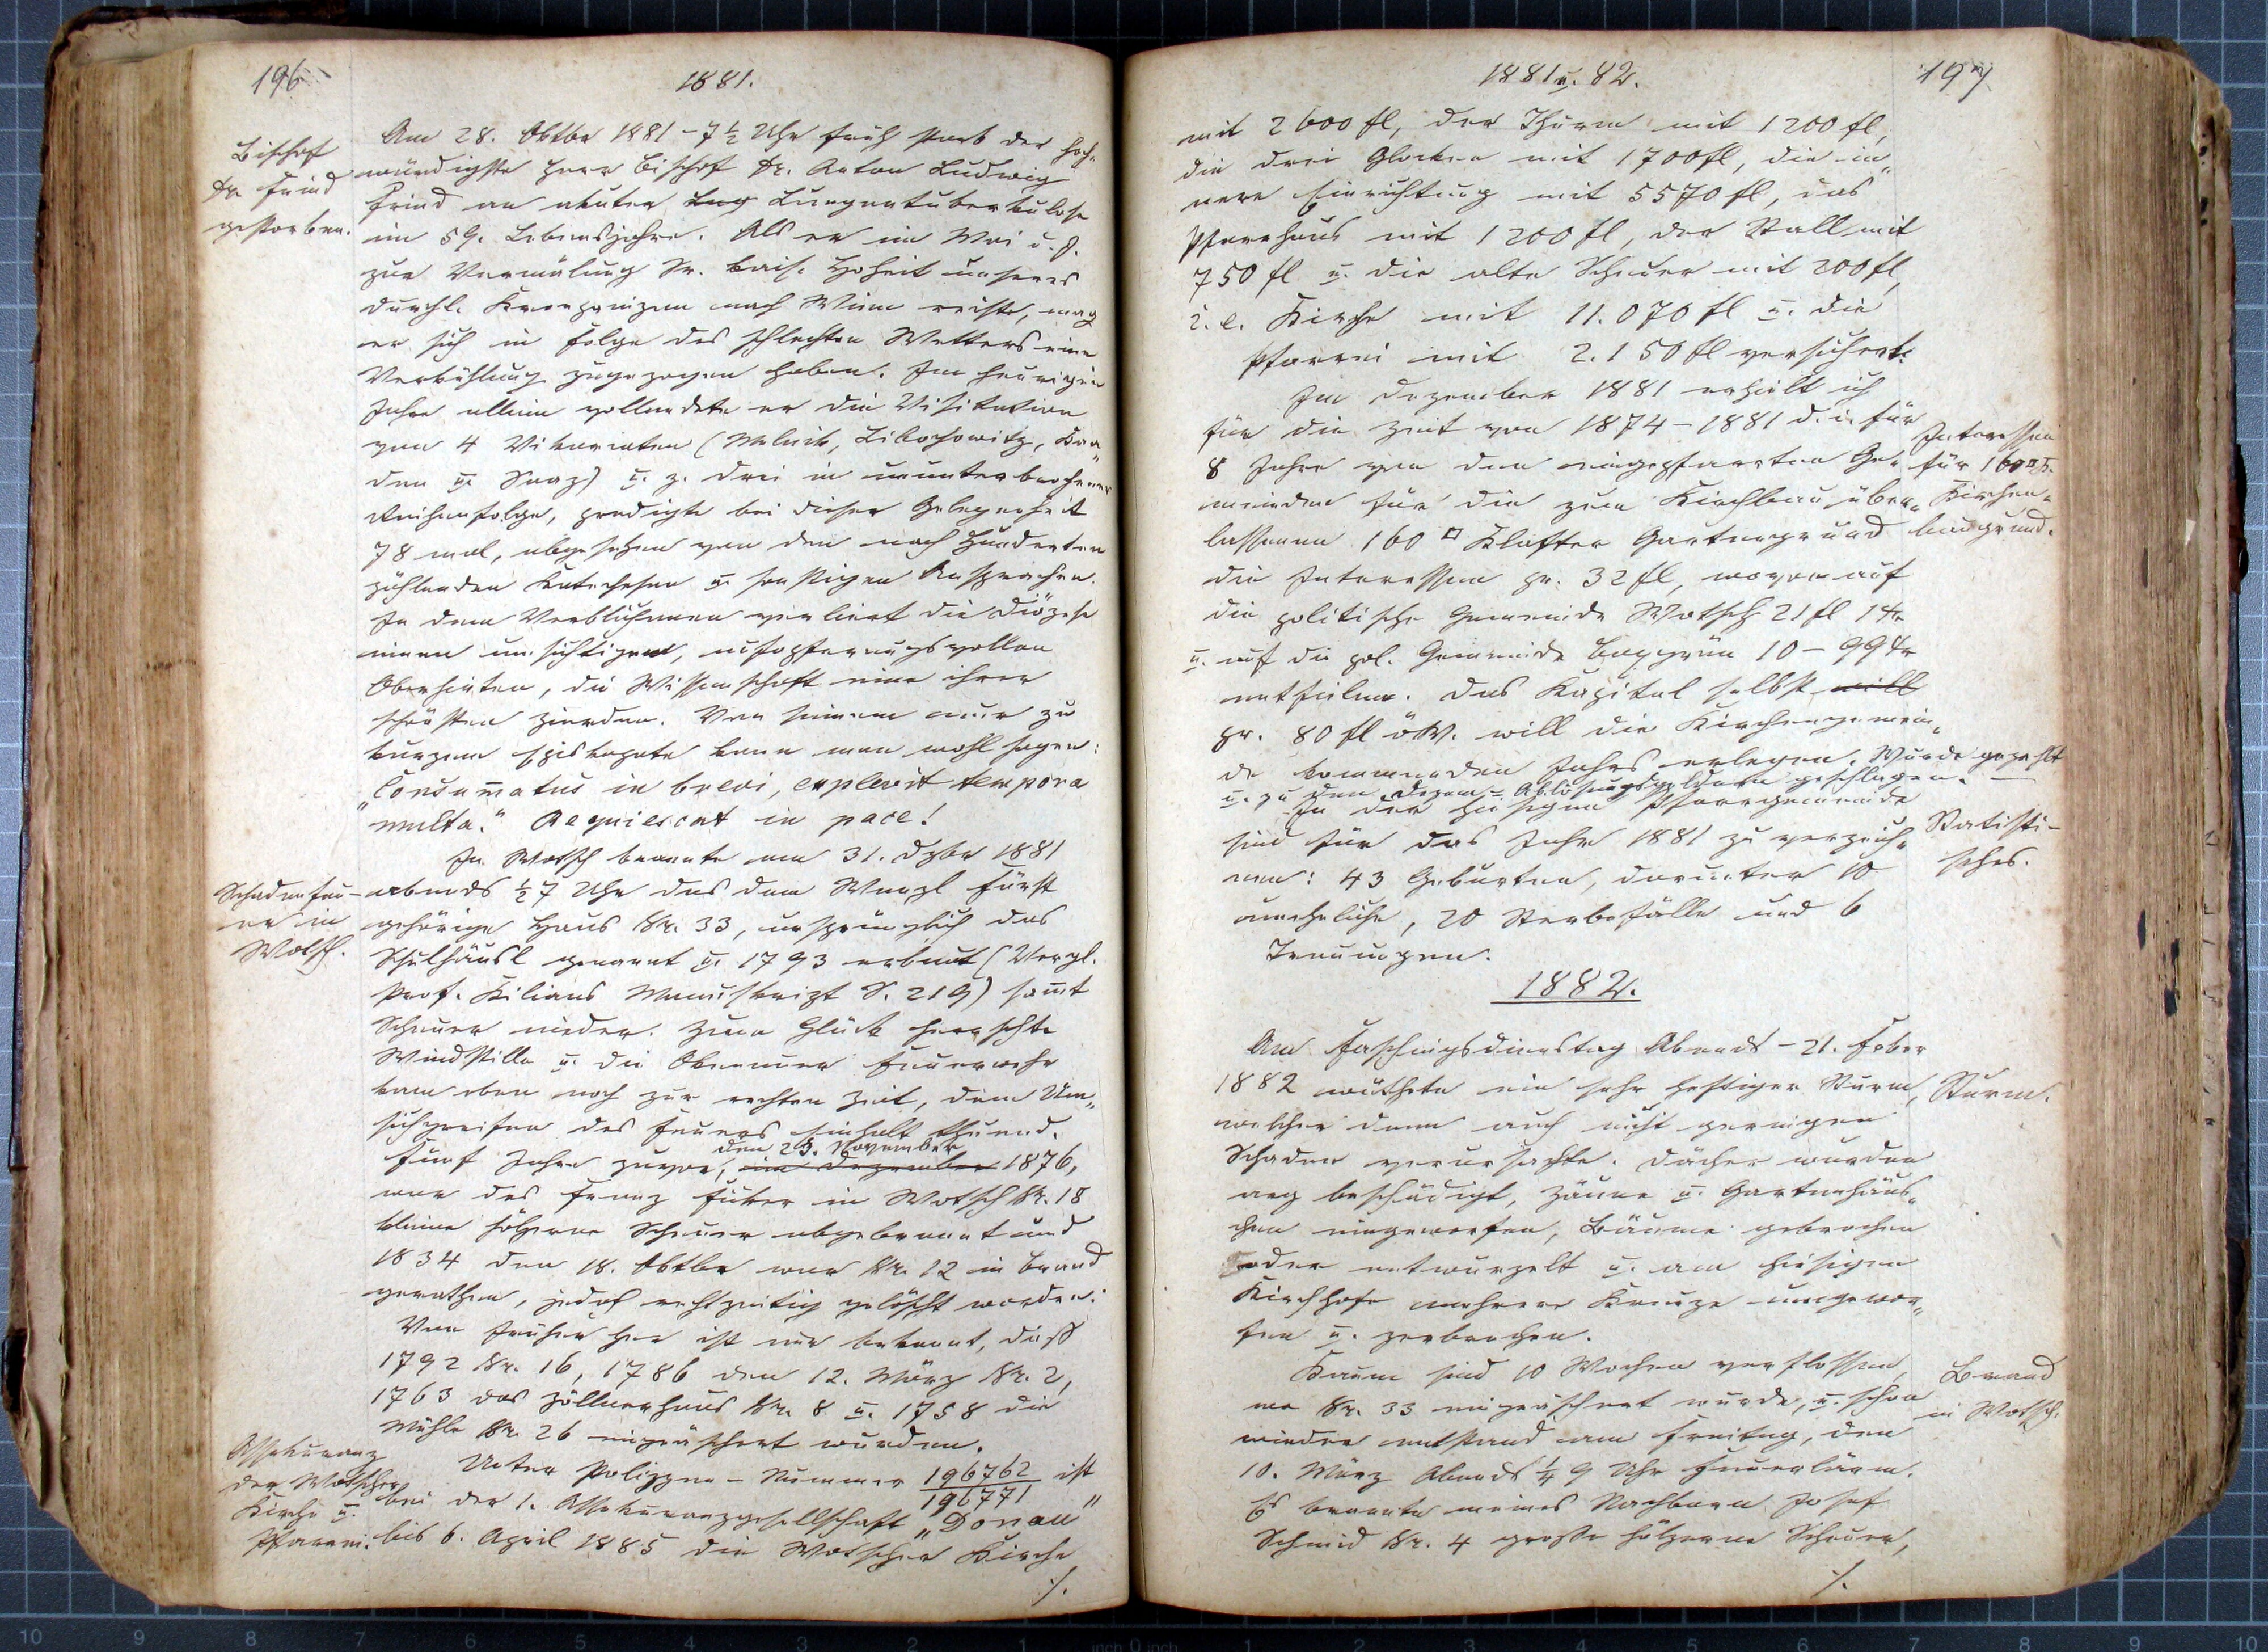 196
1881.
Bischof
Dr. Frind
gestorben.
Am 28. Oktbr 1881 - 7 ½ Uhr früh starb der hoch-
würdigste Herr Bischof Dr. Anton Ludwig
Frind an akuter Lung Lungentuberkulose
im 59. Lebensjahre. Als er im Mai d. J.
zur Vermälung Sr. kais. Hoheit unseres
durchl. Kronprinzen nach Wien reiste, mag
er sich in Folge des schlechten Wetters eine
Verkühlung zugezogen haben. Im heurigen
Jahre allein vollendete er die Visitation
von 4 Vikariaten (Melnik, Libochowitz, Kaa-
den u. Saaz) u. z. drei in ununterbrochener
Reihenfolge, predigte bei dieser Gelegenheit
78 mal, abgesehen von den nach Hunderten
zählenden Katechesen u. sonstigen Ansprachen.
In dem Verblichenen verliert die Diözese
einen umsichtigen, aufopferungsvollen
Oberhirten, die Wissenschaft eine ihrer
schönsten Zierden. Von seinem nur zu
kurzem Episkopate kann man wohl sagen:
"Consumatus in brevi, explevit tempora
multa." Requiescat in pace!
Schadenfeu-
er in
Wotsch.
In Wotsch brannte am 31. Dzbr 1881
abends ½ 7 Uhr das dem Wenzl Fürst
gehörige Haus Nr. 33, ursprünglich das
Schulhäusl genannt u. 1793 erbaut (Vergl.
Prof. Kilians Manuskript S. 219) samt
Scheuer nieder. Zum Glück herrschte
Windstille u. die Feuerwehr
kam eben noch zur rechten Zeit, dem Um-
sichgreifen des Feuers Einhalt thuend.
den 25. November
Fünf Jahre zuvor, im Dezember 1876,
war des Franz in Wotsch Nr. 18
kleine hölzerne Scheuer abgebrannt und
1834 den 18. Oktbr war Nr. 12 in Brand
gerathen, jedoch rechtzeitig gelöscht worden.
Von früher her ist nur bekannt, daß
1792 Nr. 16, 1786 den 12. März Nr. 2,
1763 das Zöllnerhaus Nr. 8 u. 1758 die
Mühle Nr. 26 eingeäschert wurden.
Assekuranz
der Wotscher
Kirche u.
Pfarrei.
Unter Polizzen-Nummer 196762/196771 ist
bei der 1. Assekuranzgesellschaft "Donau"
bis 6. April 1885 die Wotscher Kirche
./.
1881 u. 82.
197
mit 2600 fl, der Thurm mit 1200 fl,
die drei Glocken mit 1700 fl, die in-
nere Einrichtung mit 5570 fl, das
Pfarrhaus mit 1200 fl, der Stall mit
750 fl u. die alte Scheuer mit 200 fl,
i. e. Kirche mit 11.070 fl u. die
Pfarrei mit 2.150 fl versichert.
Im Dezember 1881 erhielt ich
für die Zeit von 1874-1881 d. i. für
8 Jahre von den eingepfarrten Ge-
meinden für die zum Kirchbau über-
lassenen 160 □ Klafter Gartengrund
die Interessen pr. 32 fl, wovon auf
die politische Gemeinde Wotsch 21 fl 1 kr
u. auf die pol. Gemeinde 10 - 99 kr
entfielen. Das Kapital selbst will
pr. 80 fl öW. will die Kirchengemein-
de kommenden Jahres erlegen. Wurde gezahlt
u. zu den Dezem-Ablösungsgeldern geschlagen. -
Interessen
für 160 □
Kirchen-
baugrund.
In der hiesigen Pfarrgemeinde
sind für das Jahr 1881 zu verzeich-
nen: 43 Geburten, darunter 10
uneheliche, 20 Sterbefälle und 6
Trauungen.
Statisti-
sches.
1882.
Am Faschingsdienstag Abends - 21. Feber
1882 wüthete ein sehr heftiger Sturm,
welcher denn auch nicht geringen
Schaden verursachte. Dächer wurden
arg beschädigt, Zäune u. Gartenhäus-
chen eingeworfen, Bäume gebrochen
oder entwurzelt u. am hiesigen
Kirchhofe mehrere Kreuze umgewor-
fen u. zerbrochen.
Sturm.
Kaum sind 10 Wochen verflossen,
wo Nr. 33 eingeäschert wurde, u. schon
wieder entstand am Freitag, den
10. März Abends ¼ 9 Uhr Feuerlärm.
Es brannte meines Nachbarn Josef
Schmid Nr. 4 große hölzerne Scheuer,
Brand
in Wotsch.
./.